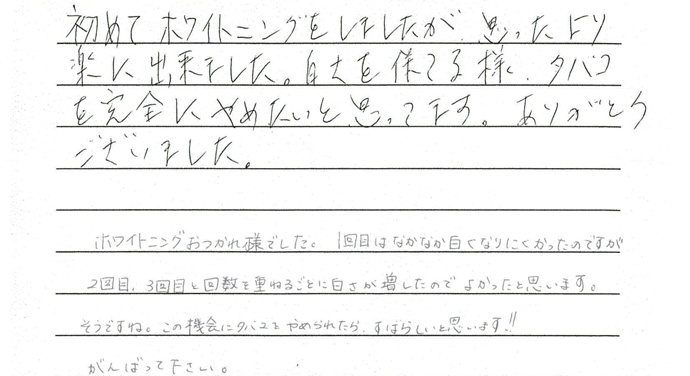 初めてホワイトニングをしましたが、思ったより
楽に出来ました。白さを保てる様、タバコ
を完全にやめたいと思ってます。ありがとう
ございました。
ホワイトニングおつかれ様でした。1回目はなかなか白くなりにくかったのですが
2回目、3回目と回数を重ねるごとに白さが増したのでよかったと思います。
そうですね。この機会にタバコをやめられたら、すばらしいと思います!!
がんばって下さい。